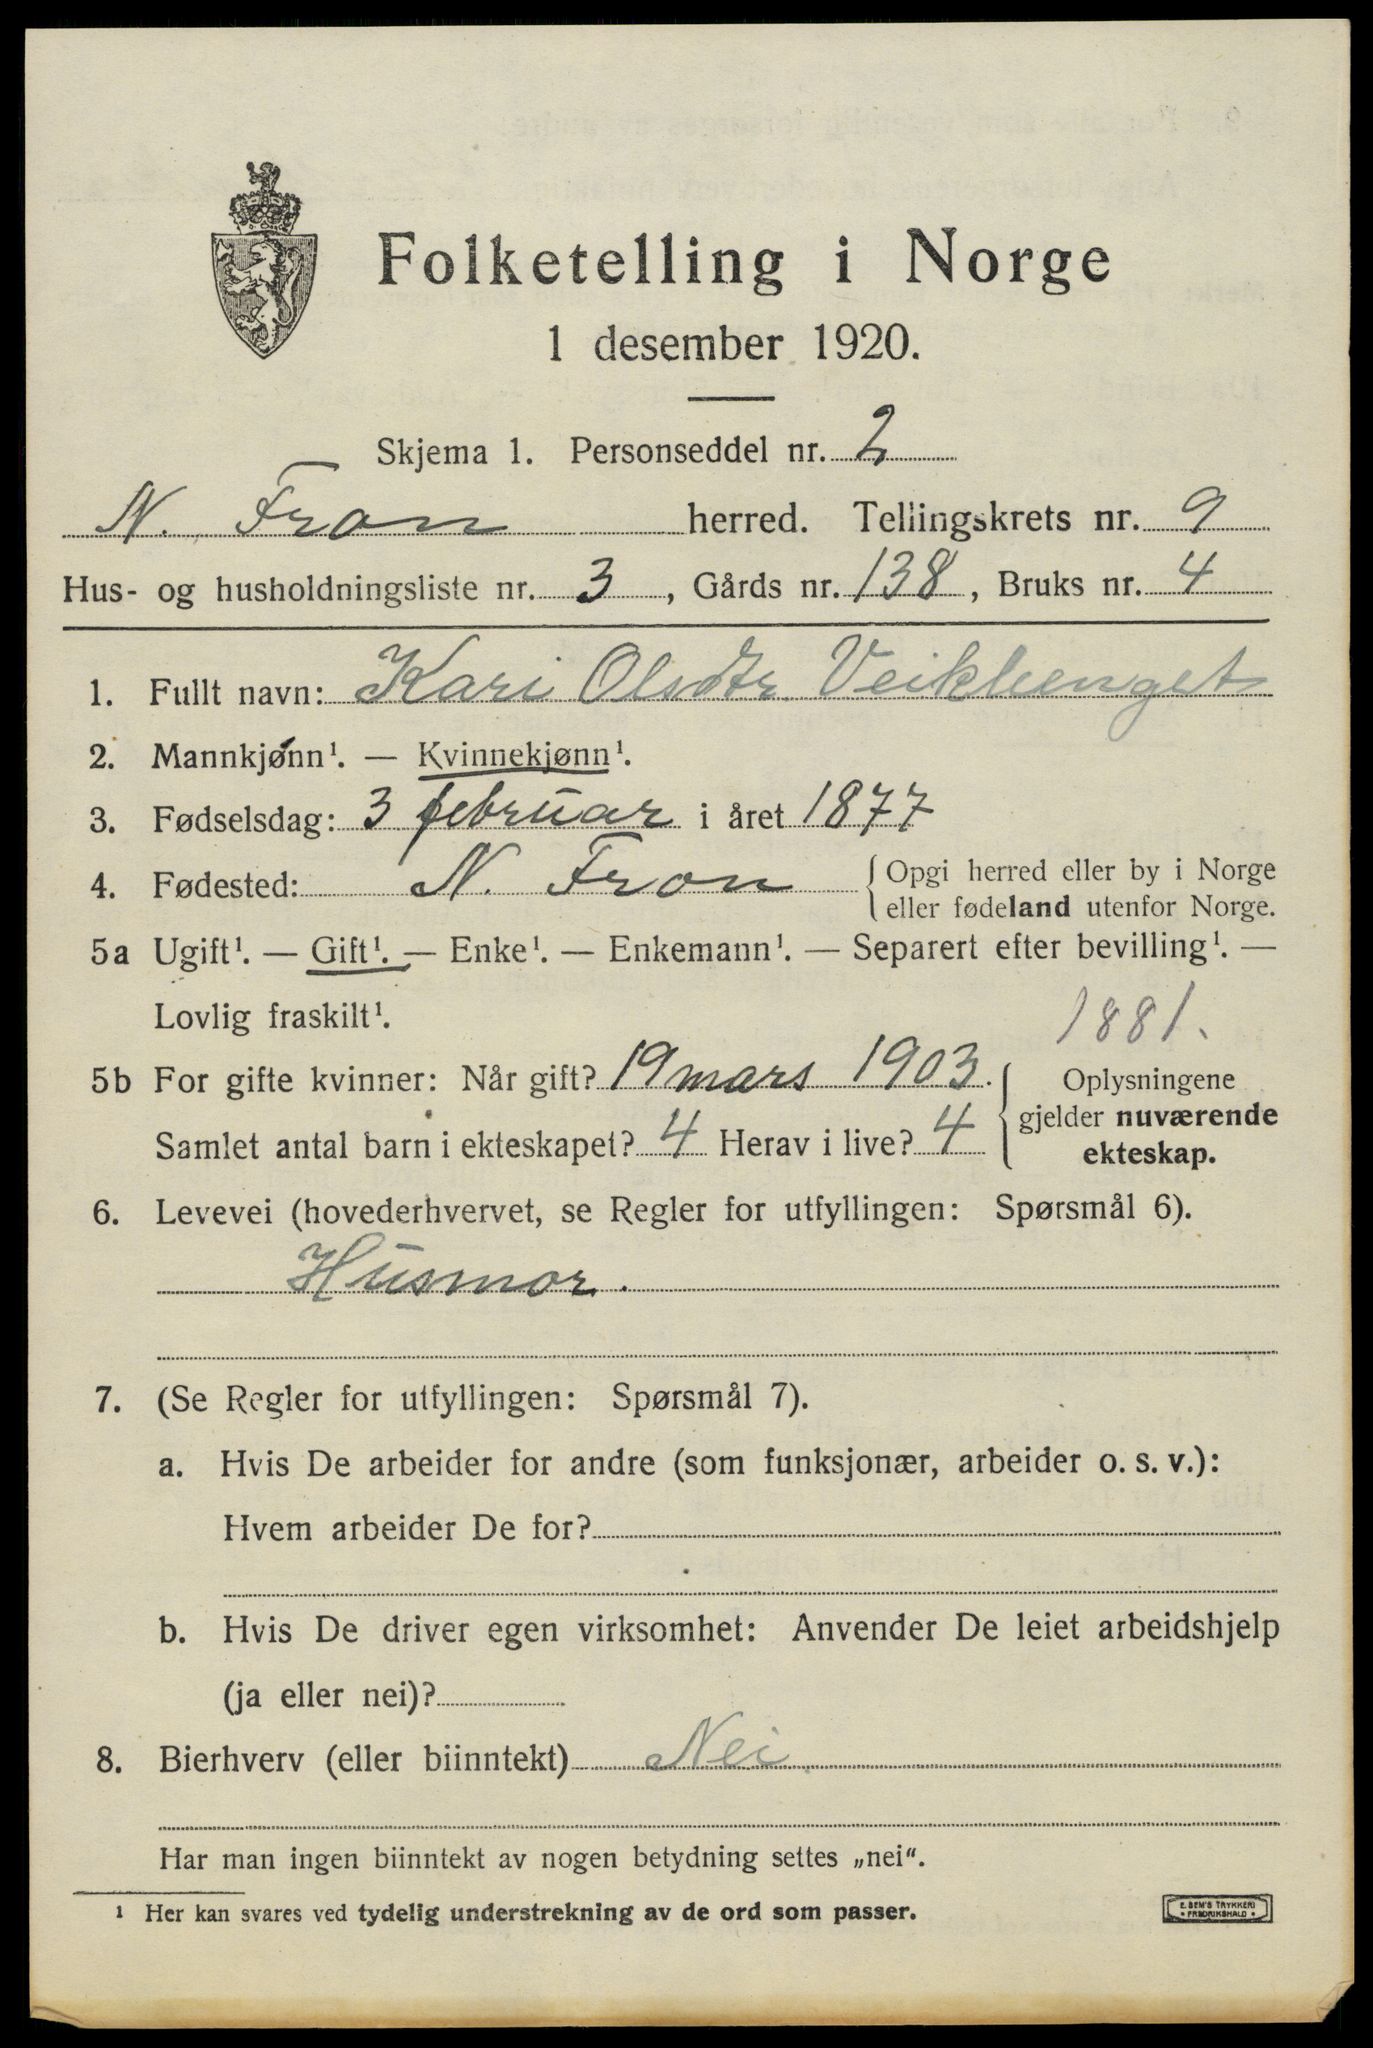 Folketelling i Norge
1 desember 1920.
Skjema 1. Personseddel nr. 2
N. Fron herred. Tellingskrets nr. 9
Hus- og husholdningsliste nr. 3, Gårds nr. 138, Bruks nr. 4
1. Fullt navn: Kari Olsdtr. Veiklenget
2. Mannkjønn¹. — Kvinnekjønn¹.
3. Fødselsdag: 3 februar i året 1877
4. Fødested: N. Fron { Opgi herred eller by i Norge
eller fødeland utenfor Norge.
5a Ugift¹. — Gift¹. — Enke¹. — Enkemann¹. — Separert efter bevilling¹. —
Lovlig fraskilt¹.
1881.
5b For gifte kvinner: Når gift? 19 mars 1903.
Samlet antal barn i ekteskapet? 4 Herav i live? 4
Oplysningene
gjelder nuværende
ekteskap.
6. Levevei (hovederhvervet, se Regler for utfyllingen: Spørsmål 6).
Husmor.
7. (Se Regler for utfyllingen: Spørsmål 7).
a. Hvis De arbeider for andre (som funksjonær, arbeider o. s. v.):
Hvem arbeider De for?
b. Hvis De driver egen virksomhet: Anvender De leiet arbeidshjelp
(ja eller nei)?
8. Bierhverv (eller biinntekt) Nei
Har man ingen biinntekt av nogen betydning settes „nei“.
¹ Her kan svares ved tydelig understrekning av de ord som passer.
E. SEM'S TRYKKERI
• FREDRIKSHALD •